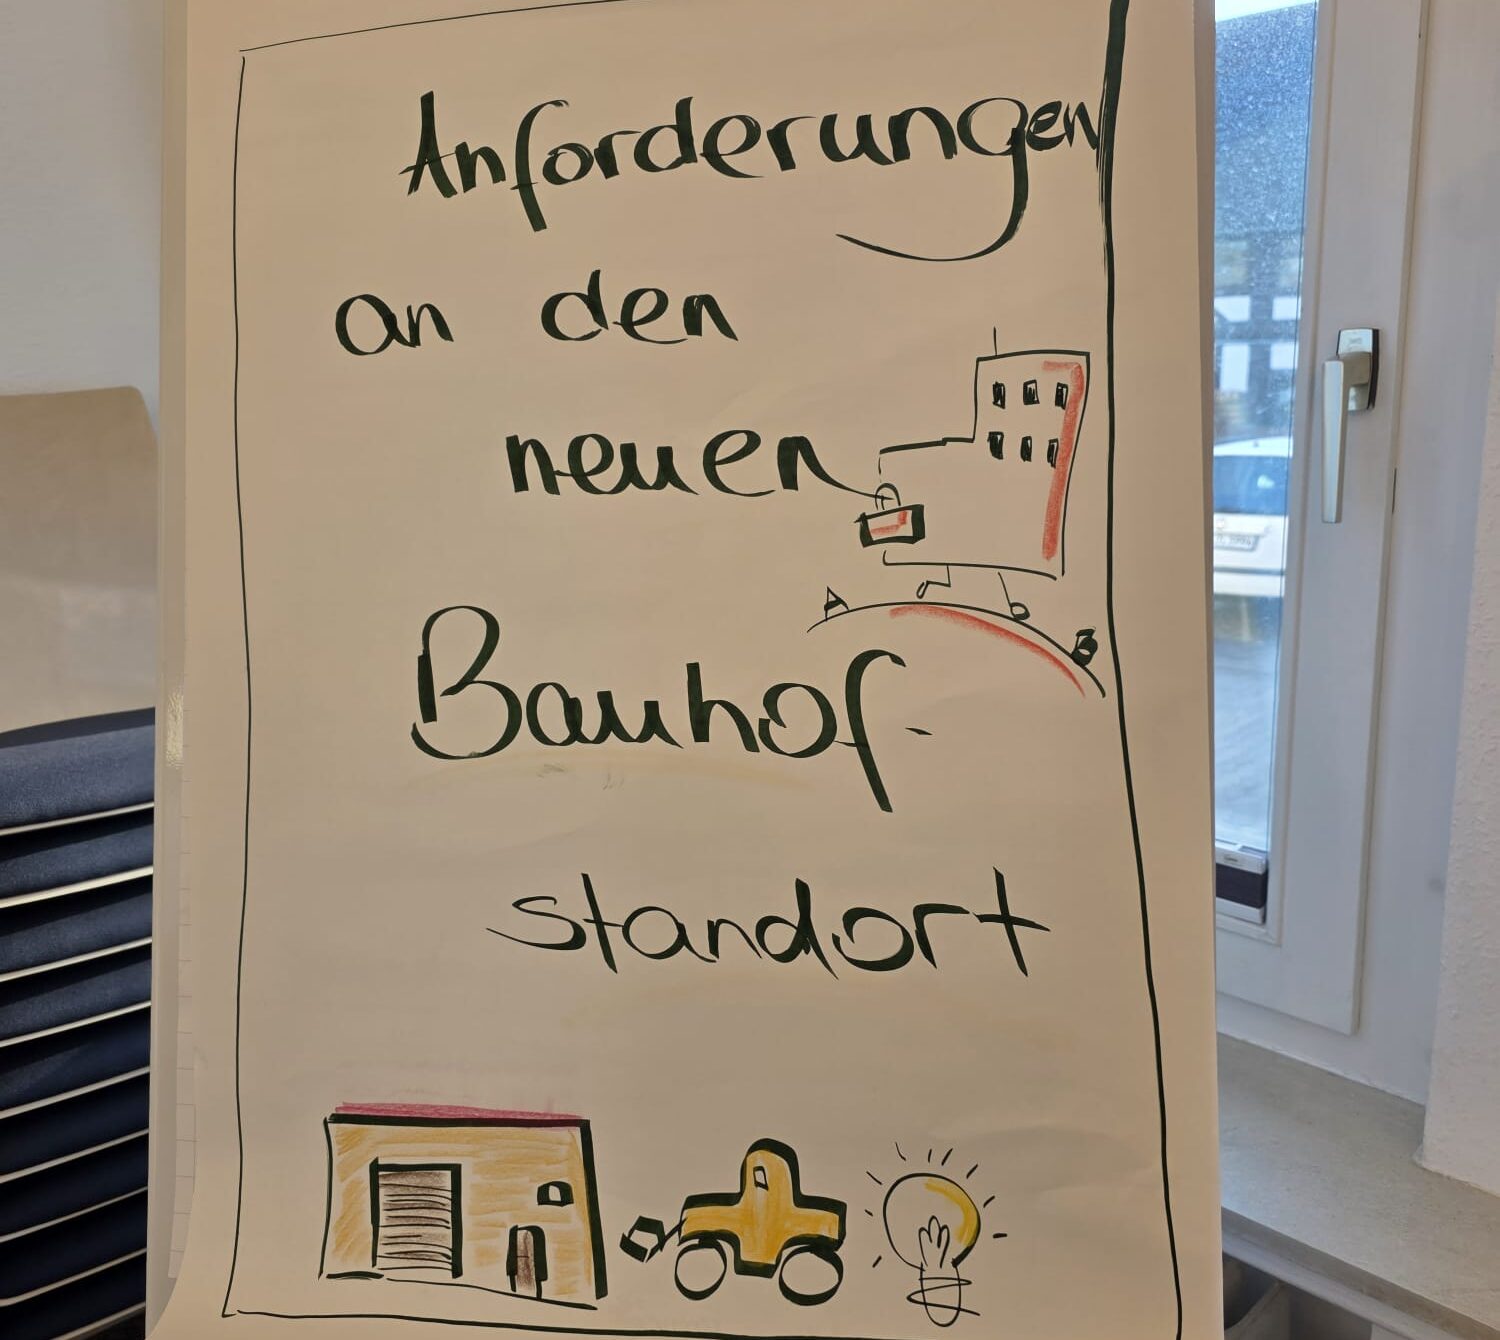 Anforderungen
an den
neuen
A
B
Bauhof-
standort